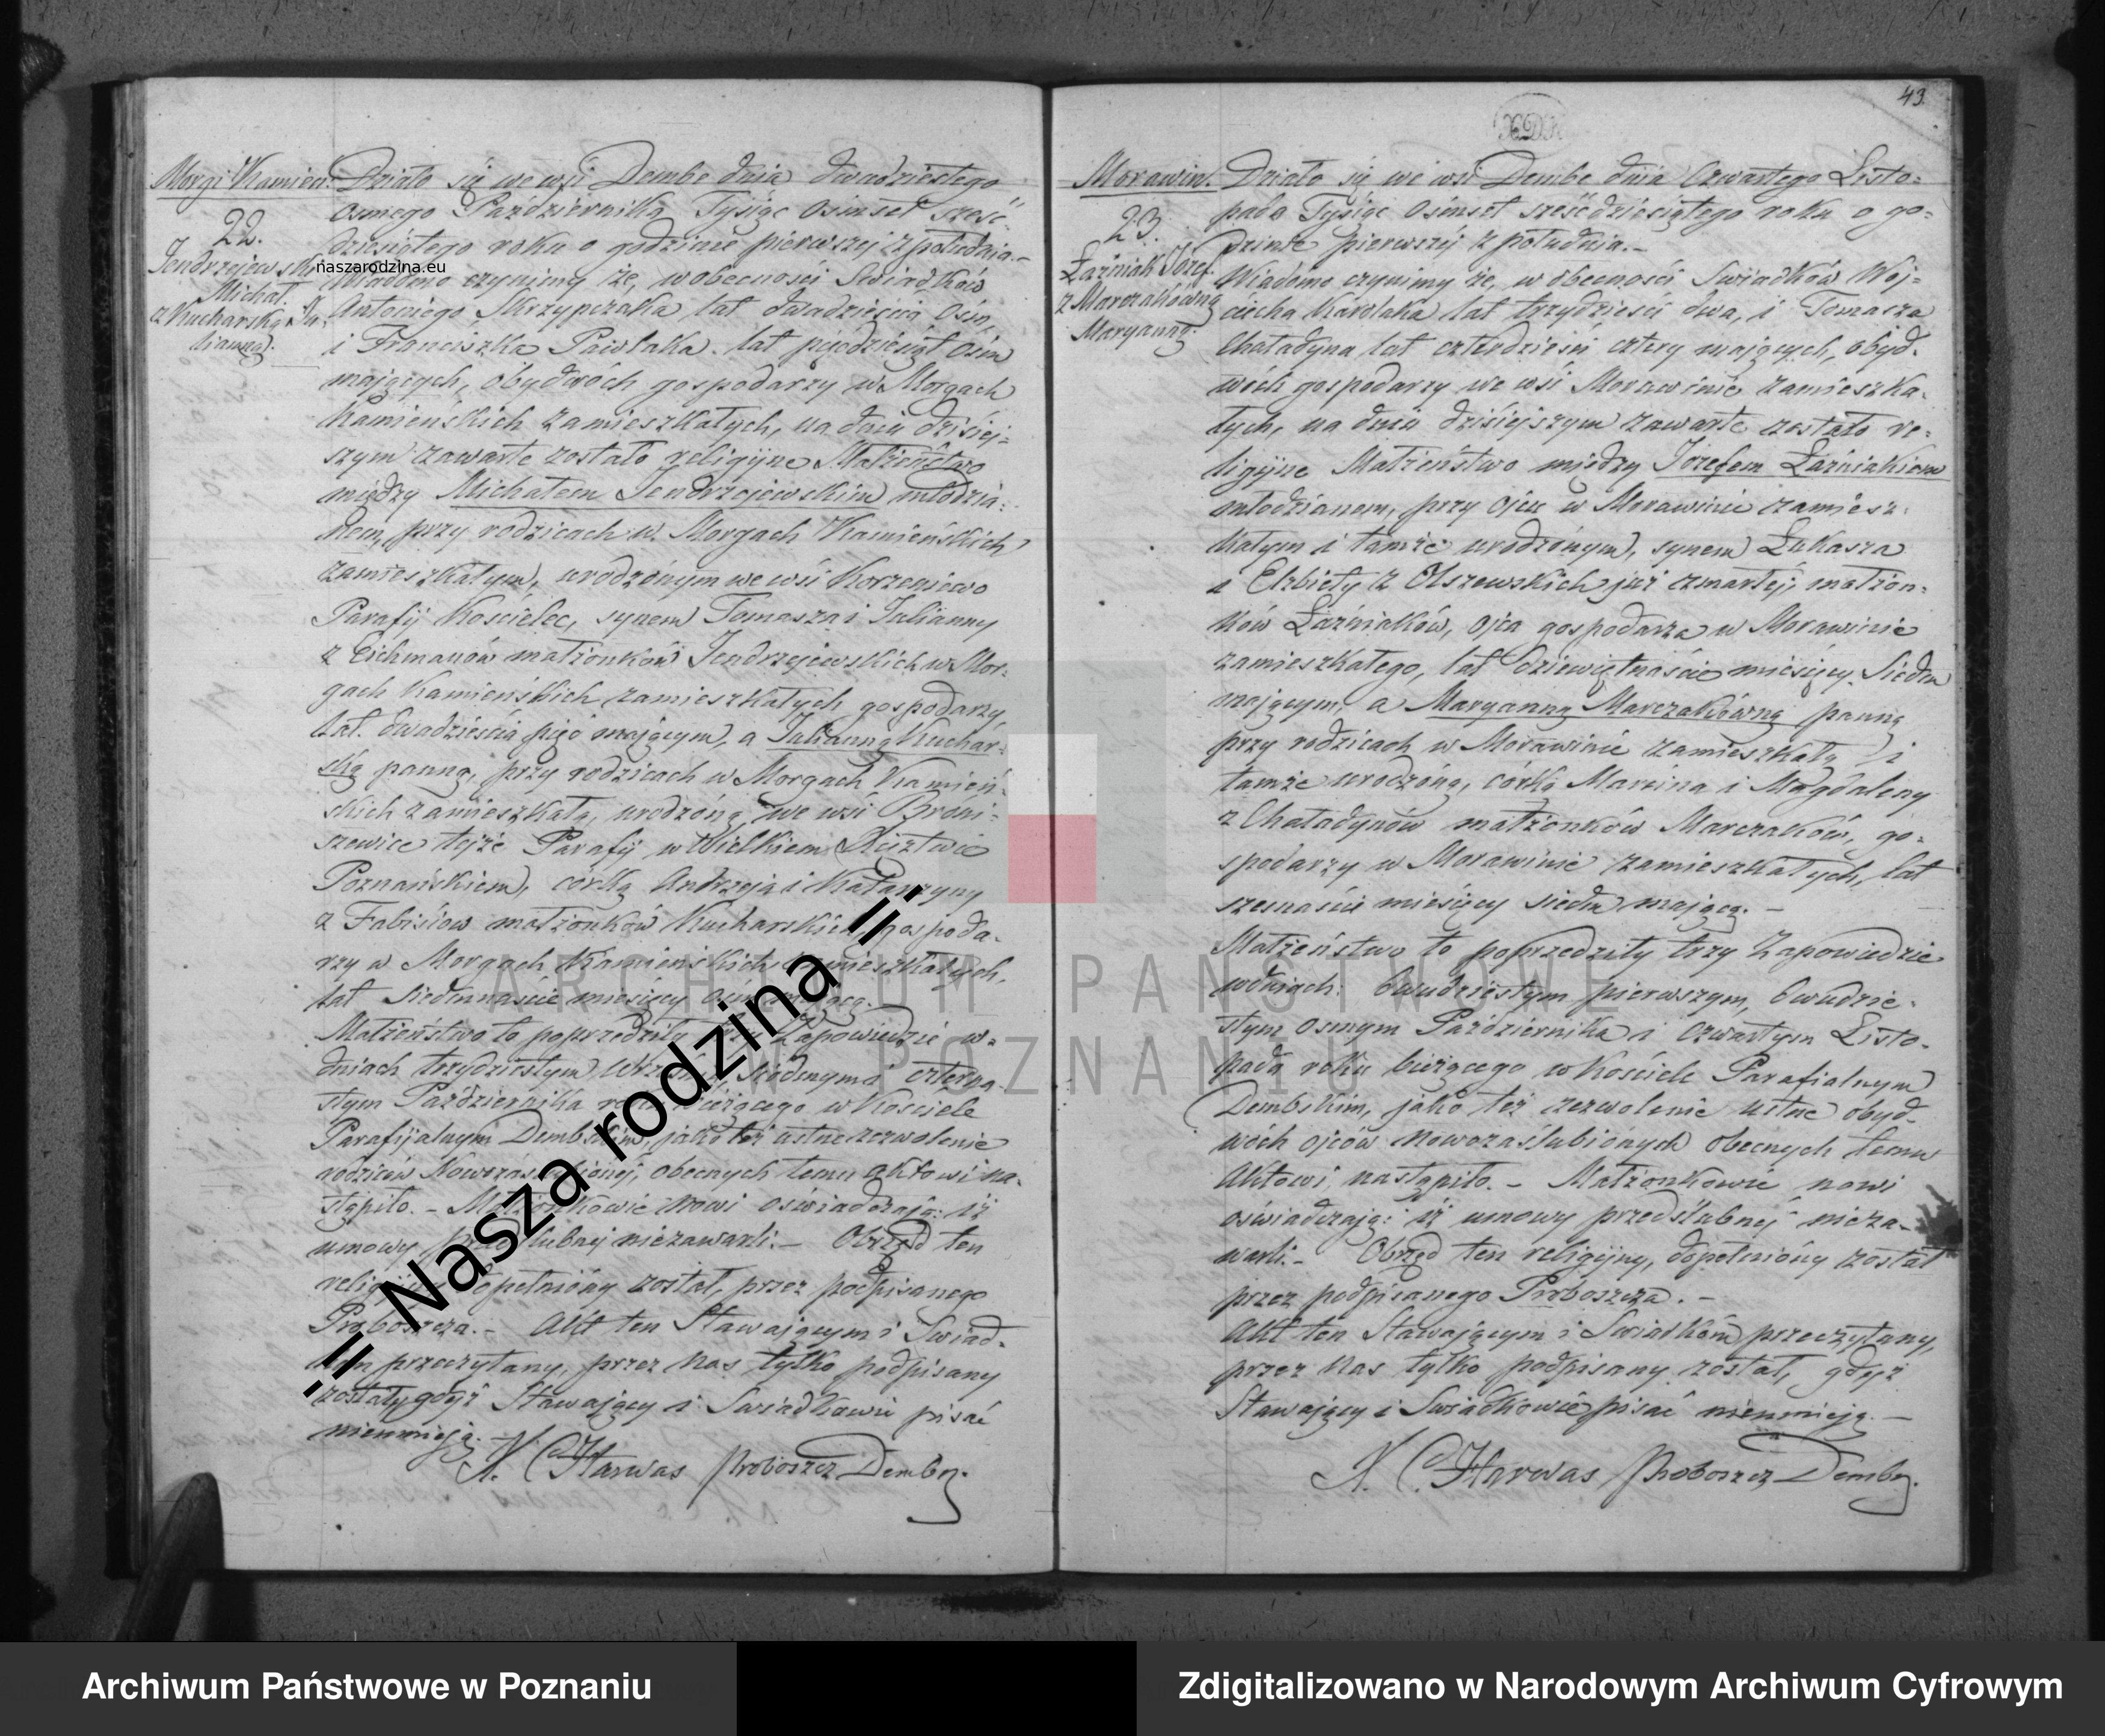 Morgi Kamień:
22.
Jendrzejewski
Michał.
z Kucharską Ju-
lianną.
naszarodzina.eu
Działo się we wsi Dembe dnia dwudziestego
osmego Października Tysiąc osimset sześć-
dziesiątego roku o godzinie pierwszej z południa. –
Wiadomo czynimy że, w obecności Swiadków
Antoniego Skrzypczaka lat dwadzieścia osim,
i Franciszka Pawlaka lat pięćdziesiąt osim
mających, obydwóch gospodarzy w Morgach
Kamieńskich zamieszkałych, na dniu dzisiej-
szym zawarte zostało religijne Małżeństwo
między Michałem Jendrzejewskim młodzia-
nem, przy rodzicach w Morgach Kamieńskich
zamieszkałym, urodzonym we wsi Korzeniewo
Parafij Kościelec, synem Tomasza i Julianny
z Eichmanów małżonków Jendrzejewskich w Mor-
gach Kamieńskich zamieszkałych gospodarzy,
lat dwadzieścia pięć mającym, a Julianną Kuchar-
ską panną, przy rodzicach w Morgach Kamień-
skich zamieszkałą, urodzoną we wsi Broni-
szewice tejże Parafij w Wielkiem Księztwie
Poznańskiem, córką Andrzeja i Katarzyny
z Fabisiow małżonków Kucharskich, gospoda-
rzy w Morgach Kamieńskich zamieszkałych,
lat siedmnaście miesięcy osim mającą. –
Małżeństwo to poprzedziły trzy Zapowiedzie w-
dniach trzydziestym Września, siódmym i czterna-
stym Października roku bieżącego w Kościele
Parafijalnym Dembskim, jako też ustne zezwolenie
rodziców Nowozaślubionej, obecnych temu aktowi na-
stąpiło. – Małżonkowie nowi oświadczają: iż
umowy przedślubnej niezawarli. – Obrzęd ten
religijny dopełniony został, przez podpisanego
Proboszcza. – Akt ten Stawającym i Swiad-
kom przeczytany, przez Nas tylko podpisany
został, gdyż Stawający i Swiadkowie pisać
nieumieją. –
X. C. Harwas Proboszcz Dembs.
!! Nasza rodzina !!
43.
Morawin.
23.
Łaźniak Józef.
z Marczakówną
Maryanną.
Działo się we wsi Dembe dnia Czwartego Listo-
pada Tysiąc osimset sześćdziesiątego roku o go-
dzinie pierwszej z południa. –
Wiadomo czynimy że, w obecności Swiadków Woj-
ciecha Karolaka lat trzydzieści dwa, i Tomasza
Chaładyna lat czterdzieści cztery mających, obyd-
wóch gospodarzy we wsi Morawinie zamieszka-
łych, na dniu dzisiejszym zawarte zostało re-
ligijne Małżeństwo między Józefem Łaźniakiem
młodzianem, przy ojcu w Morawinie zamiesz-
kałym i tamże urodzonym, synem Łukasza
i Elżbiety z Olszewskich już zmarłej, małżon-
ków Łaźniaków, ojca gospodarza w Morawinie
zamieszkałego, lat dziewiętnaście miesięcy Siedm
mającym, a Maryanną Marczakówną panną
przy rodzicach w Morawinie zamieszkałą i
tamże urodzoną, córką Marcina i Magdaleny
z Chaładynów małżonków Marczaków, go-
spodarzy w Morawinie zamieszkałych, lat
szesnaście miesięcy siedm mającą. –
Małżeństwo to poprzedziły trzy Zapowiedzie
w dniach: dwudziestym pierwszym, dwudzie-
stym osmym Października i czwartym Listo-
pada roku bieżącego w Kościele Parafialnym
Dembskim, jako też zezwolenie ustne obyd-
wóch ojców Nowozaślubionych obecnych temu
Aktowi, nastąpiło. – Małżonkowie nowi
oświadczają: iż umowy przedślubnej nieza-
warli. – Obrzęd ten religijny, dopełniony został
przez podpisanego Proboszcza. –
Akt ten Stawającym i Swiadkom przeczytany,
przez Nas tylko podpisany został, gdyż
Stawający i Swiadkowie pisać nieumieją. –
X. C. Harwas Proboszcz Dembs.
ARCHIWUM PAŃSTWOWE
W POZNANIU
Archiwum Państwowe w Poznaniu
Zdigitalizowano w Narodowym Archiwum Cyfrowym